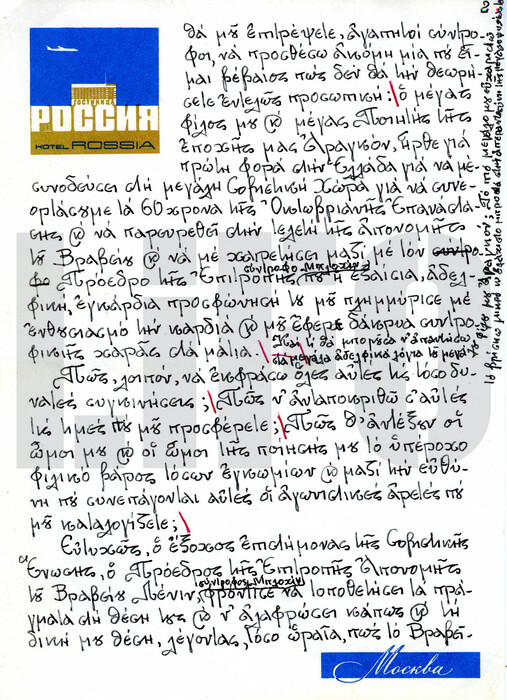 ГОСТИНИЦА
РОССИЯ
HOTEL ROSSIA
2
θά μοῦ ἐπιτρέψετε, ἀγαπητοί σύντρο-
φοι, νά προσθέσω ἀκόμη μία πού εἶ-
μαι βέβαιος πώς δέν θά τήν θεωρή-
σετε ἐντελῶς προσωπική: ὁ μέγας
φίλος μου ϗ μέγας Ποιητής τῆς
ἐποχῆς μας Ἀραγκόν, ἦρθε γιά
πρώτη φορά στήν Ἑλλάδα γιά νά μέ
συνοδεύσει στή μεγάλη Σοβιετική Χώρα γιά νά συνε-
ορτάσουμε τά 60 χρονα τῆς Ὀκτωβριανῆς Ἐπανάστα-
σης ϗ νά παρευρεθεῖ στήν τελετή τῆς ἀπονομῆς
τοῦ Βραβείου ϗ νά μέ χαιρετήσει μαζί μέ τόν
Πρόεδρο τῆς Ἐπιτροπῆς σύντροφο Μπλοχίν πού ἡ ἐξαίσια, ἀδελ-
φική, ἐγκάρδια προσφώνησή του μοῦ πλημμύρισε μέ
ἐνθουσιασμό τήν καρδιά ϗ μοῦ ἔφερε δάκρυα συντρο-
φικῆς χαρᾶς στά μάτια.
Καί τί θά μποροῦσα ν' ἀπαντήσω
στά μεγάλα ἀδελφικά λόγια τοῦ μεγάλου
φίλου μου Ἀραγκόν;
Πῶς, λοιπόν, νά ἐκφράσω ὅλες αὐτές τίς τόσο δυ-
νατές συγκινήσεις; Πῶς ν' ἀνταποκριθῶ σ' αὐτές
τίς τιμές πού μοῦ προσφέρετε; Πῶς θ' ἀντέξουν οἱ
ὦμοι μου ϗ οἱ ὦμοι τῆς ποίησής μου τό ὑπέροχο
φιλικό βάρος τόσων ἐγκωμίων ϗ μαζί τήν εὐθύ-
νη πού συνεπάγονται αὐτές οἱ ἀγωνιστικές ἀρετές πού
μοῦ καταλογίζετε;
Εὐτυχῶς, ὁ ἔξοχος ἐπιστήμονας τῆς Σοβιετικῆς
Ἕνωσης, ὁ Πρόεδρος τῆς Ἐπιτροπῆς Ἀπονομῆς
τοῦ Βραβείου Λένιν, σύντροφος Μπλοχίν, φρόντισε νά τοποθετήσει τά πρά-
γματα στή θέση τους ϗ ν' ἀλαφρώσει κάπως ϗ τή
δική μου θέση, λέγοντας, τόσο ὡραῖα, πώς τό Βραβεῖ-
Москва